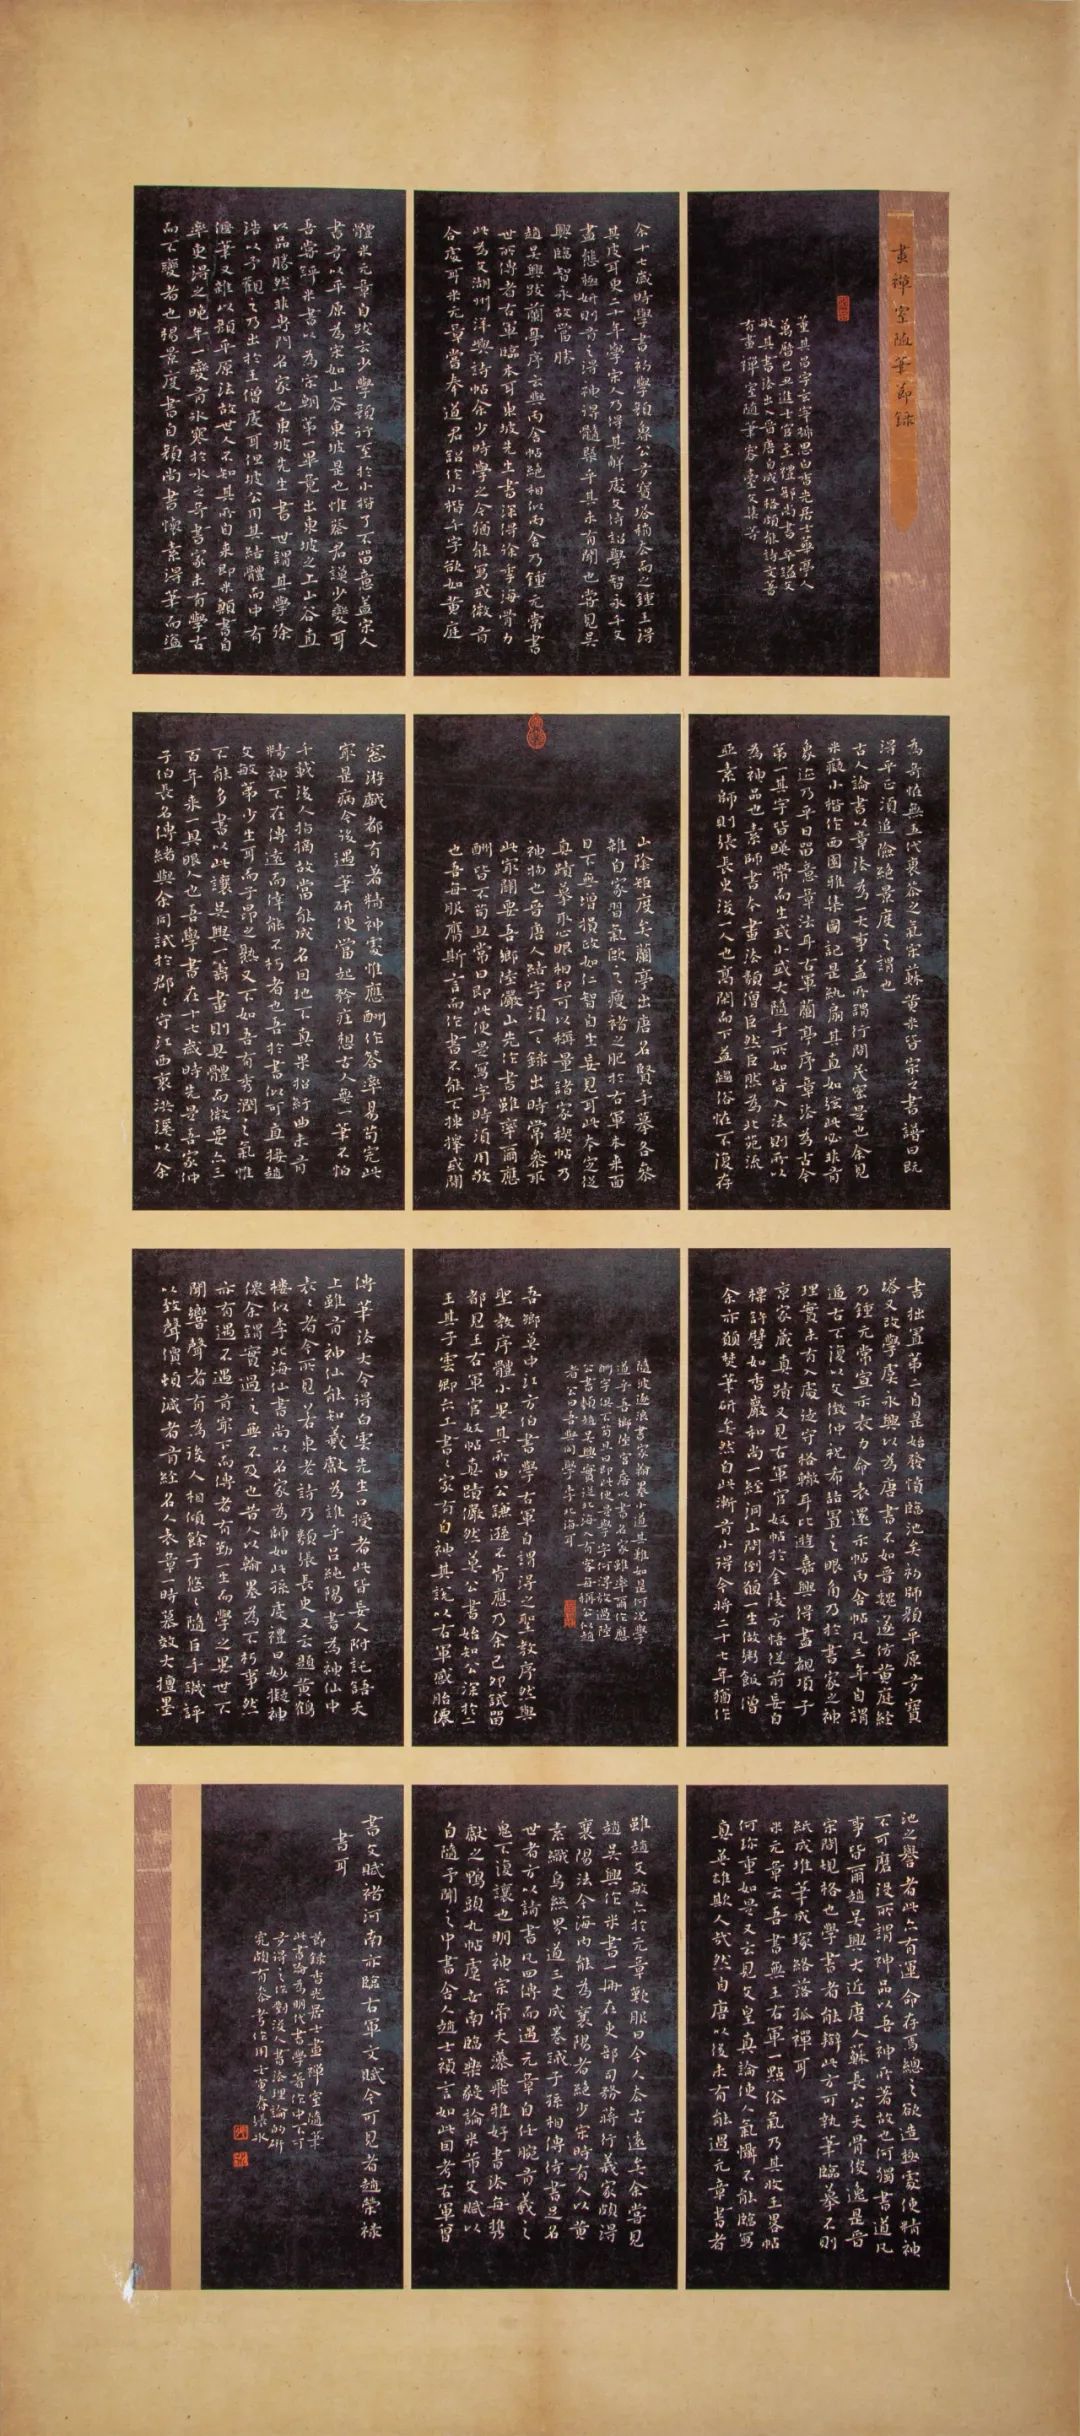 畫禪室隨筆節錄
董其昌字玄宰號思白香光居士華亭人
萬曆己丑進士官至禮部尚書卒謚文
敏其書法出入晋唐自成一格頗能詩文著
有畫禪室隨筆容臺文集等
余十七歲時學書初學顏魯公多寶塔稍去而之鍾王得
其皮耳更二十年學宋人乃得其解處文待詔學智永千文
盡態極妍則有之得神得髓槩乎其未有聞也嘗見吴
興臨智永故當勝
趙吴興跋蘭亭序云與丙舍帖絕相似丙舍乃鍾元常書
世所傳者右軍臨本耳東坡先生書深得徐季海骨力
此為文湖州洋嶼詩帖余少時學之今猶能寫或微有
合處耳米元章嘗奉道君詔作小楷千字欲如黄庭
體米元章自跋云少學顏行至於小楷了不留意盖宋人
書多以平原為宗如山谷東坡是也惟蔡君謨少變耳
吾嘗評米書為宋朝第一畢竟出東坡之上山谷直
以品勝然非專門名家也東坡先生書世謂其學徐
浩以予觀之乃出於王僧虔耳但坡公用其結體而中有
偃筆又雜以顏平原法故世人不知其所自來即米顛書自
率更得之晚年一變有冰寒於水之奇書家未有學古
而不變者也楊景度書自顏尚書懷素得筆而溢
為奇恠無五代衰苶之氣宋蘇黄米皆宗之書譜曰既
得平正須追險絕景度之謂也
古人論書以章法為一大事盖所謂行間茂密是也余見
米癡小楷作西園雅集圖記是紈扇其直如弦此必非有
象迹乃平日留意章法耳右軍蘭亭序章法為古今
第一其字皆暎帶而生或小或大隨手所如皆入法則所以
為神品也素師書本畫法類僧巨然巨然為北苑流
亞素師則張長史後一人也高閑而下益趨俗怪不復存
山陰矩度矣蘭亭出唐名賢手摹各參
雜自家習氣歐之瘦褚之肥於右軍本來面
目不無增損政如仁智自生妄見耳此本定從
真蹟摹取心眼相印可以稱量諸家稧帖乃
神物也晉唐人結字須一一錄出時常參取
此最關要吾鄉陸儼山先作書雖率爾應
酬皆不苟且常曰即此便是寫字時須用敬
也吾每服膺斯言而作書不能不揀擇或閒
窓遊戲都有着精神處惟應酬作答率易苟完此
最是病今後遇筆研便當起矜莊想古人無一筆不怕
千載後人指摘故當能成名因地不真果招紆曲未有
精神不在傳遠而偉能不朽者也吾於書似可直接趙
文敏第少生耳而子昂之熟又不如吾有秀潤之氣惟
不能多書以此讓吴興一籌畫則具體而微要亦三
百年來一具眼人也吾學書在十七歲時先是吾家仲
子伯長名傳緒與余同試於郡郡守江西衷洪溪以余
書拙置第二自是始發憤臨池矣初師顏平原多寶
塔又改學虞永興以為唐書不如晉魏遂仿黄庭經
乃鍾元常宣示表力命表還示帖丙舍帖凡三年自謂
逼古不復以文徵仲祝希哲置之眼角乃於書家之神
理實未有入處徒守格轍耳比遊嘉興得盡覩項子
京家藏真蹟又見右軍官奴帖於金陵方悟從前妄自
標許譬如香巖和尚一經洞山問倒願一生做粥飯僧
余亦願焚筆研矣然自此漸有小得今將二十七年猶作
隨波逐浪書家翰墨小道其難如是何況學
道乎吾鄉陸宫詹以書名家雖率爾作應
酬字俱不苟且曰即此便是學字何得放過陸
公書類趙吴興實從北海入有客每稱公似趙
者公曰吾與同學李北海耳
吾鄉莫中江方伯書學右軍自謂得之聖教序然與
聖教序體小異其所由公謙遜不肯應乃余己卯試留
都見王右軍官奴帖真蹟儼然莫公書始知公深於二
王其子雲卿亦工書書家有自神其說以右軍感胎僊
傳筆法大令得白雲先生口授者此皆妄人附託語天
上雖有神仙能知羲獻為誰乎吕純陽書為神仙中
表表者今所見若東老詩乃類張長史又云題黄鶴
樓似李北海仙書尚以名家為師如此孫虔禮曰妙擬神
僊余謂實過之無不及也昔人以翰墨為不朽事然
亦有遇不遇有最下而傳者有勤一生而學之異世不
聞響聲者有為後人相傾餘子悠悠隨巨手譏評
以致聲價頓減者有經名人表章一時慕效大擅墨
池之譽者此亦有運命存焉總之欲造極處使精神
不可磨没所謂神品以吾神所著故也何獨書道凡
事皆爾趙吴興大近唐人蘇長公天骨俊逸是晉
宋間規格也學書者能辯此方可執筆臨摹不則
紙成堆筆成塚終落狐禪耳
米元章云吾書無王右軍一點俗氣乃其收王畧帖
何珍重如是又云見文皇真論使人氣懾不能臨寫
真英雄欺人哉然自唐以後未有能過元章書者
雖趙文敏亦於元章歎服曰今人去古遠矣余嘗見
趙吴興作米書一冊在吏部司務蔣行義家頗得
襄陽法今海内能為襄陽者絕少宋時有人以黄
素織烏絲界道三丈成卷誡子孫相傳待書足名
世者方以請書凡四傳而遇元章自任腕有羲之
鬼不復讓也明神宗帝天藻飛雅好書法每攜
獻之鴨頭丸帖虞世南臨樂毅論米芾文賦以
自隨予聞之中書舍人趙士禎言如此因考右軍曾
書文賦褚河南亦臨右軍文賦今可見者趙榮祿
書耳
節錄香光居士畫禪室隨筆
此書論為明代書學著作中不可
多得之作對後人書法理論的研
究頗有參考作用壬寅春張冰